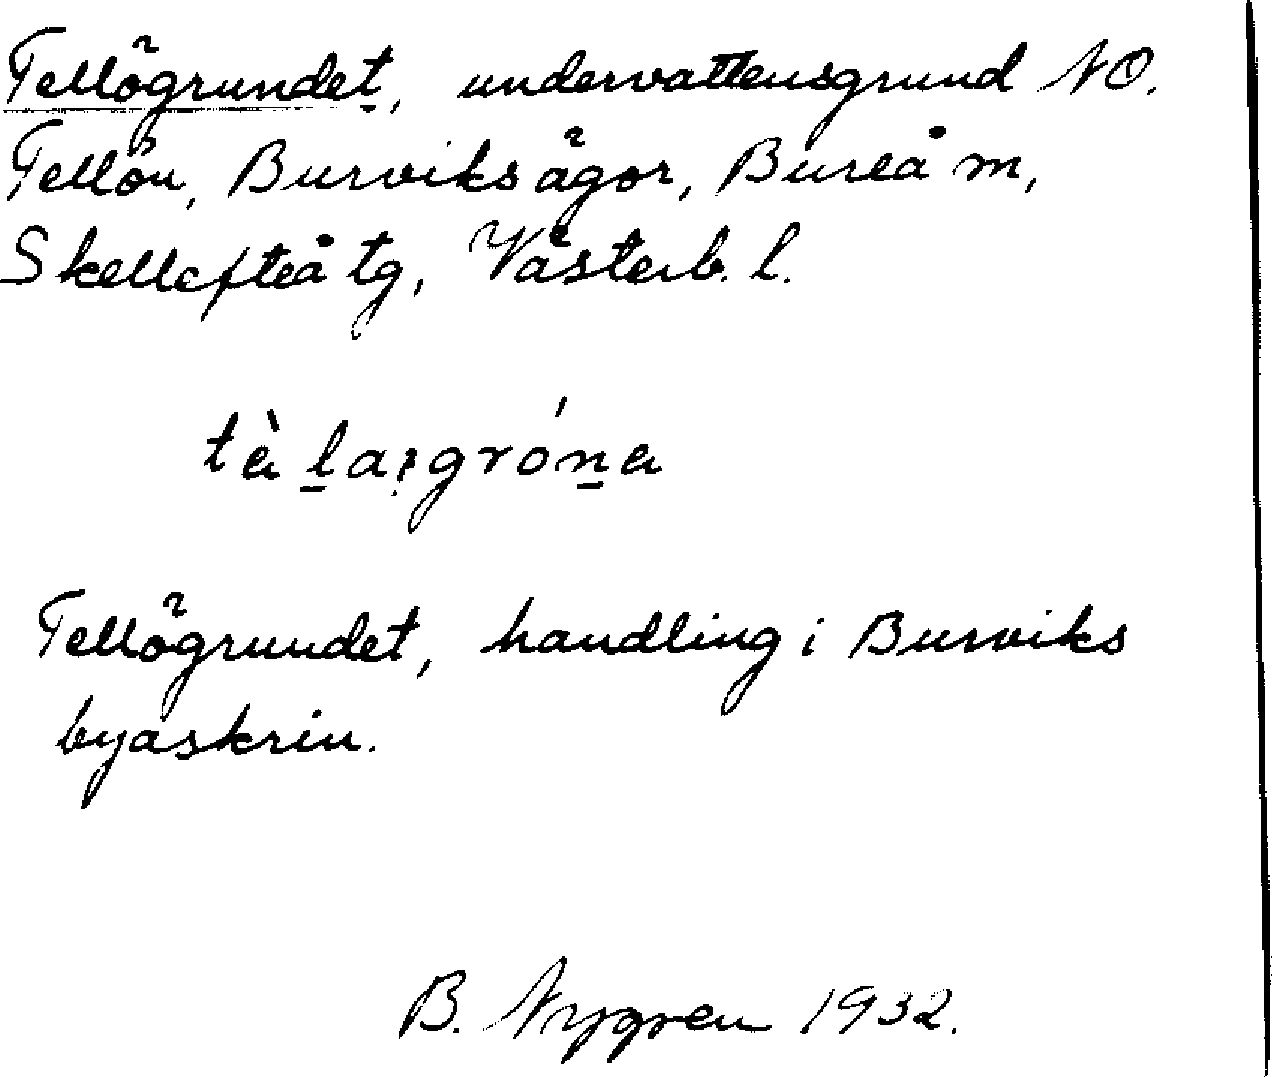 Tellögrundet, undervattensgrund NO.
Tellön, Burviks ägor, Bureå m,
Skellefteå tg, Västerb. l.
tàla,gróna
Tellögrundet, handling i Burviks
byaskrin.
B. Nygren 1932.